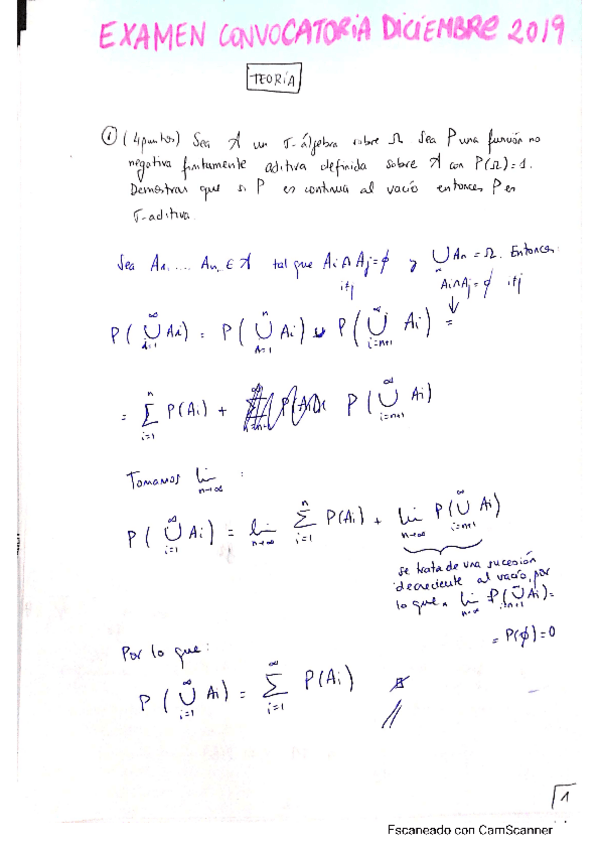 EXAMEN CONVOCATORIA DICIEMBRE 2019
TEORÍA
① (4 puntos) Sea A un σ-álgebra sobre Ω Sea P una función no
negativa finitamente aditiva definida sobre A con P(Ω)=1.
Demostrar que si P es continua al vacío entonces P es
σ-aditiva.
Sea A1, ..., An ∈ A tal que Ai ∩ Aj = ϕ y ⋃ An = Ω. Entonces:
i≠j n Ai∩Aj = ϕ i≠j
P(⋃_{i=1}^{∞} Ai) = P(⋃_{i=1}^{n} Ai) ∪ P(⋃_{i=n+1}^{∞} Ai) =
= ∑_{i=1}^{n} P(Ai) + P(⋃_{i=n+1}^{∞} Ai)
Tomamos lim_{n→∞} :
P(⋃_{i=1}^{∞} Ai) = lim_{n→∞} ∑_{i=1}^{n} P(Ai) + lim_{n→∞} P(⋃_{i=n+1}^{∞} Ai)
se trata de una sucesión
decreciente al vacío, por
lo que, lim_{n→∞} P(⋃_{i=n+1}^{∞} Ai) =
= P(ϕ) = 0
Por lo que:
P(⋃_{i=1}^{∞} Ai) = ∑_{i=1}^{∞} P(Ai)
1
Escaneado con CamScanner